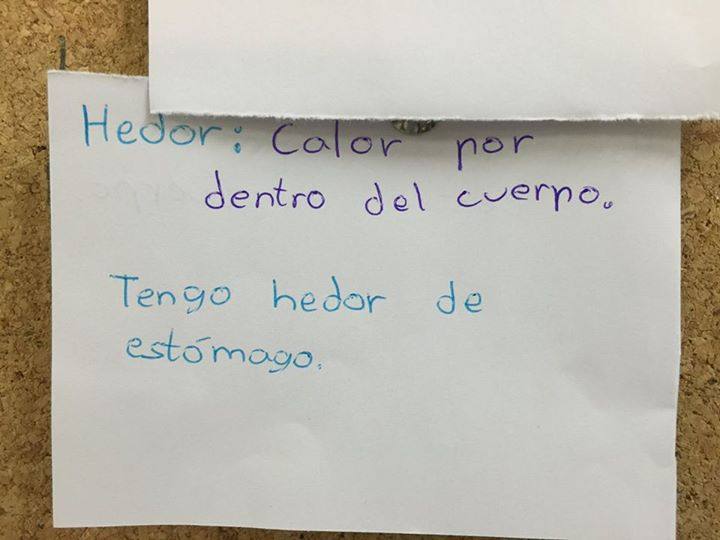 Hedor: Calor por
dentro del cuerpo.
Tengo hedor de
estómago.